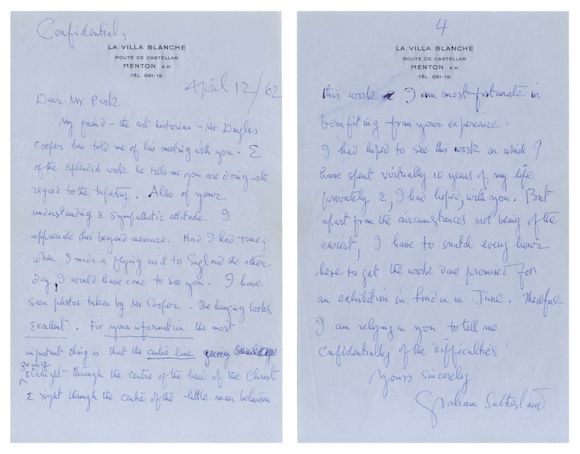 Confidential,
LA VILLA BLANCHE
ROUTE DE CASTELLAR
MENTON A.M.
TÉL. 061-16
April 12/62
Dear Mr Park
My friend – the art historian – Mr Douglas
Cooper has told me of his meeting with you. &
of the splendid work he tells me you are doing with
regard to the tapestry. Also of your
understanding & sympathetic attitude. I
appreciate this beyond measure. Had I had time,
when I made a flying visit to England the other
day, I would have come to see you. I have
seen photos taken by Mr Cooper. The hanging looks
excellent. For your information the most
important thing is that the centre line
going
straight through the centre of the head of the Christ
& right through the centre of the little man between
4
LA VILLA BLANCHE
ROUTE DE CASTELLAR
MENTON A.M.
TÉL. 061-16
this work I am most fortunate in
benifiting from your experience.
I had hoped to see this work on which I
have spent virtually 10 years of my life
privately &, I had hoped, with you. But
apart from the circumstances not being of the
easiest, I have to snatch every hour
here to get the work done promised for
an exhibition in London in June. Therefore
I am relying on you to tell me
confidentially of the difficulties
Yours sincerely
Graham Sutherland